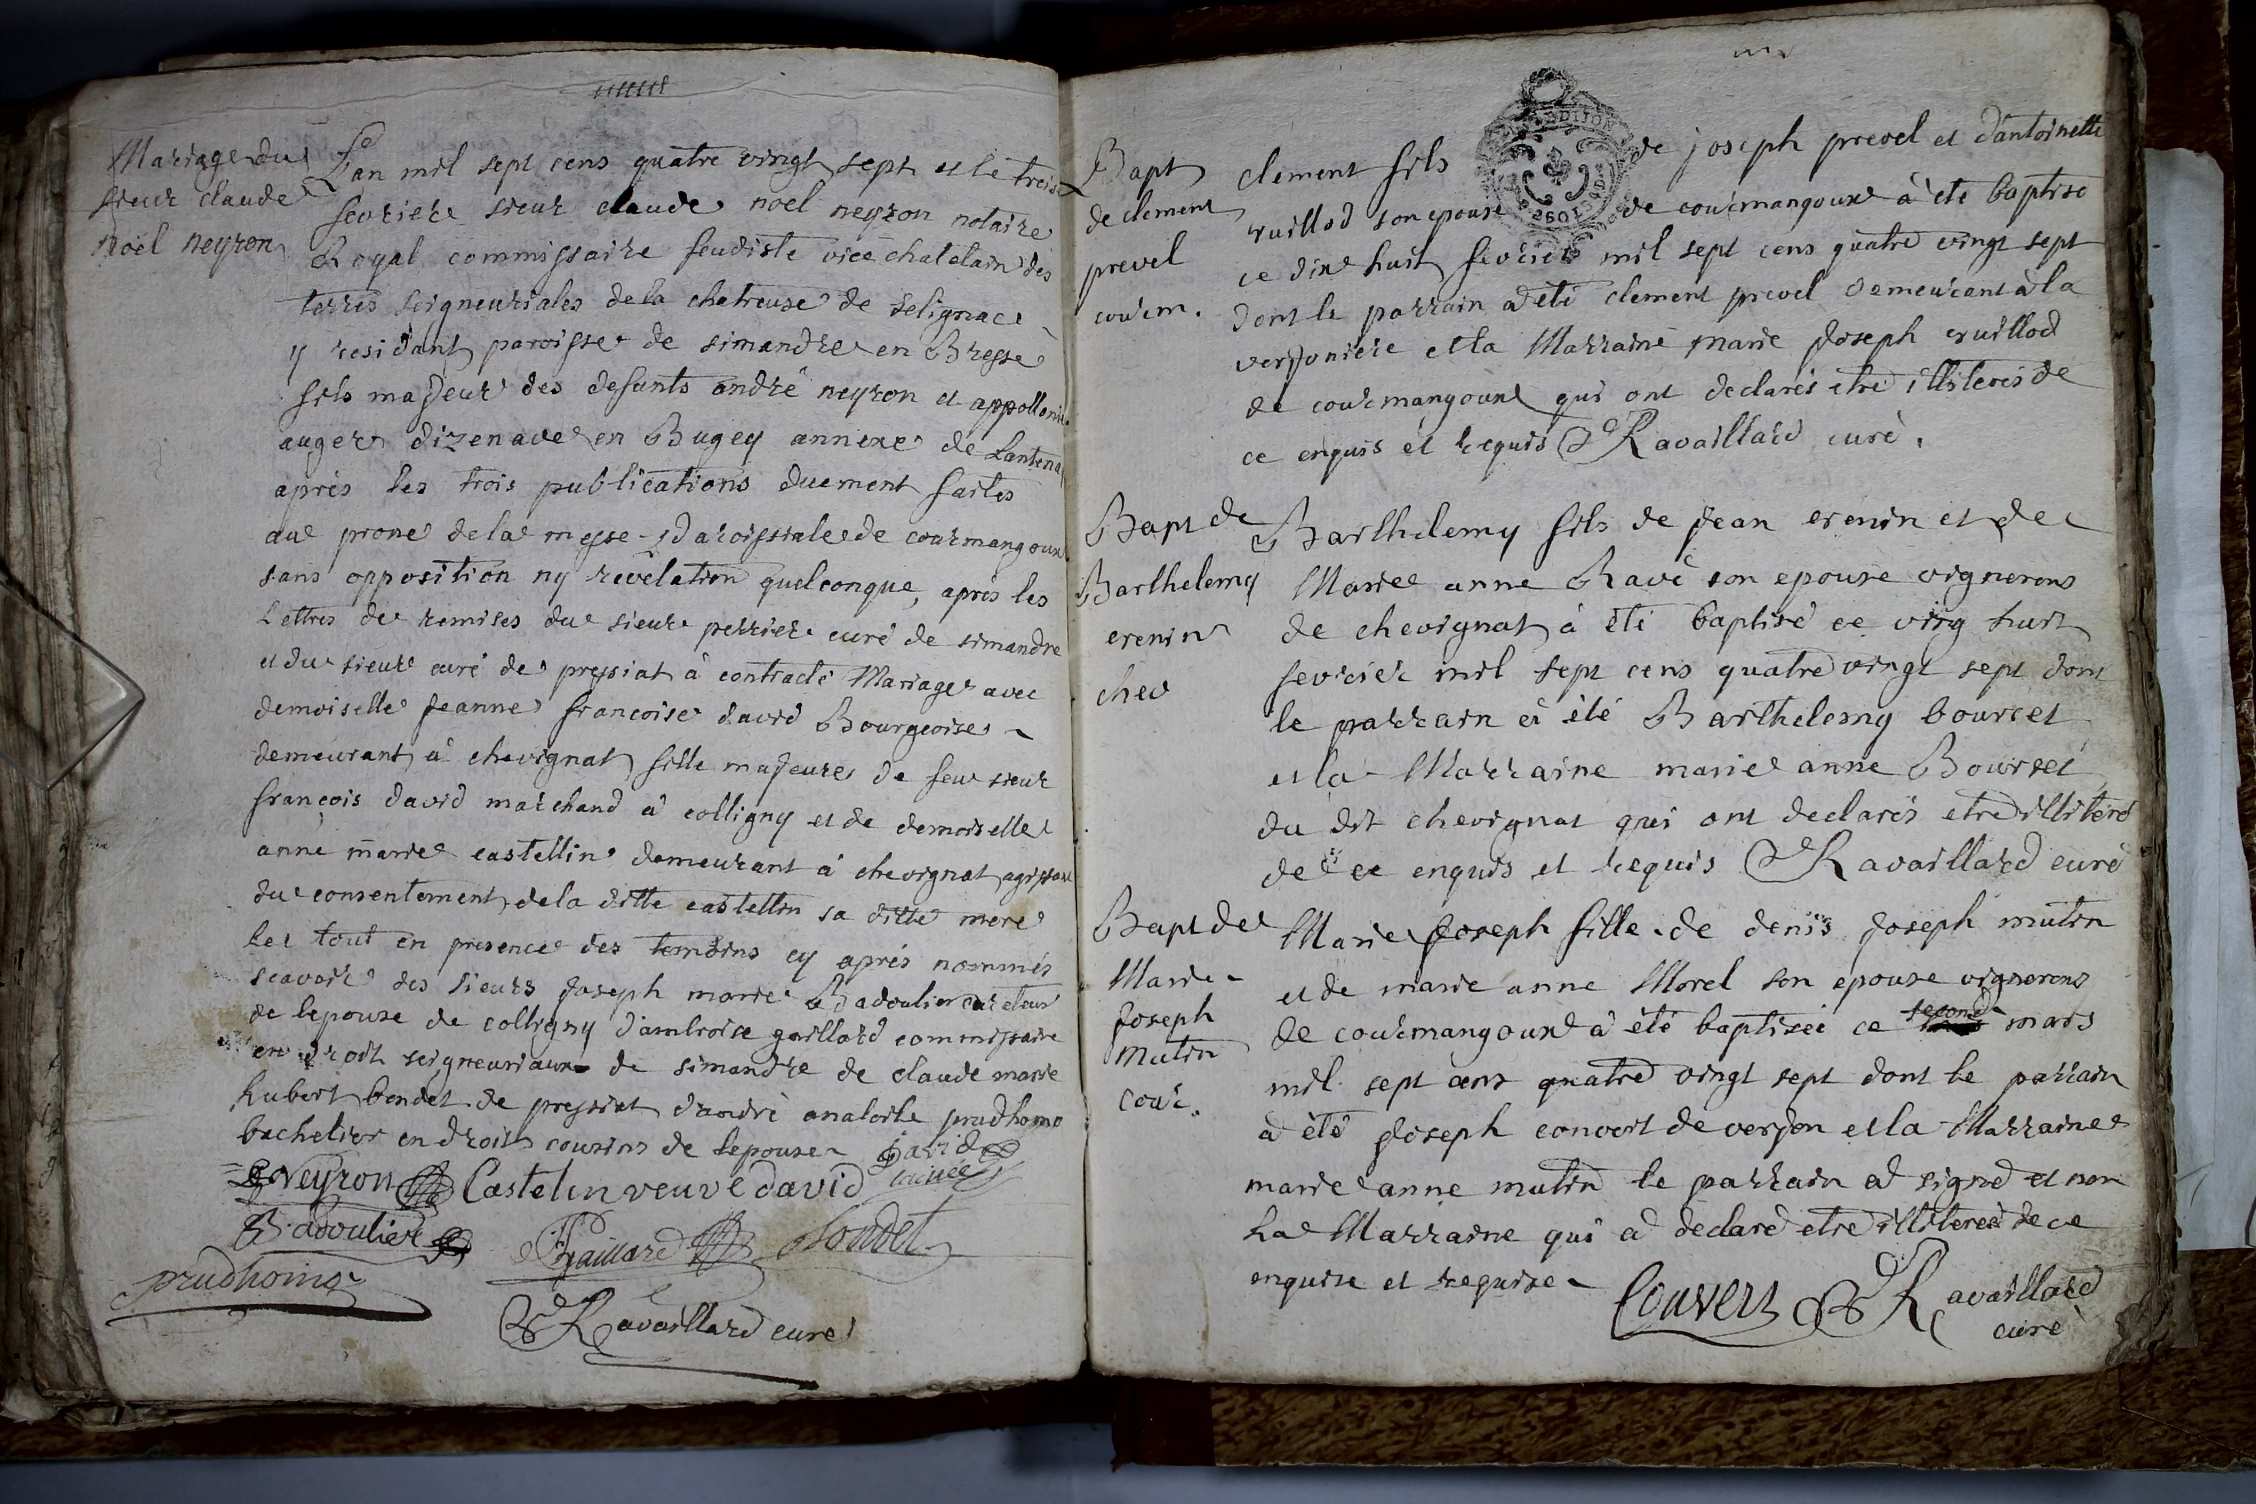 Mariage du
sieur claude
noël neyron
L'an mil sept cens quatre vingt sept et le trois
fevrier sieur claude noel neyron notaire
Royal commissaire feudiste vice chatelain des
terres seigneuriales de la chatreuse de selignac
y residant paroisse de simandre en Bresse
fils majeur des defunts andré neyron et appollonie
auger dizenave en Bugey annexe de Lantenay
après les trois publications duement faites
au prone de la messe paroissiale de courmangoux
sans opposition ny revelation quelconque, après les
Lettres de remises du sieur perrier curé de simandre
et du sieur curé de pressiat à contracté Mariage avec
demoiselle Jeanne francoise david Bourgeoise
demeurant à chevignat fille majeure de feu sieur
françois david marchand à colligny et de demoiselle
anne marie castellin demeurant à chevignat agissant
du consentement de la ditte castellin sa ditte mere
le tout en presence des temoins cy après nommés
scavoir des sieurs joseph marie Badoulier
de lepouse de colligny d'ambroise gaillard commissaire
en droit seigneuriaux de simandre de claude marie
hubert bondet de pressiat d'andré anatoile prudhome
bachelier en droit cousins de lepouse david
Neyron Castelin veuve david
Badoulier Gaillard Bondet
prudhome
Ravaillard curé
Bapt
de clement
prevel
courm.
clement fils de joseph prevel et d'antoinette
vuillod son epouse de courmangoux à été baptisé
ce dix huit fevrier mil sept cens quatre vingt sept
dont le parrain a été clement prevel demeurant à la
verjoniere et la Marraine marie joseph vuillod
de courmangoux qui ont declarés etre illiterés de
ce enquis et requis Ravaillard curé.
Bapt de
Barthelemy
erenin
chev
Barthelemy fils de jean erenin et de
Marie anne Ravé son epouse vignerons
de chevignat à été baptisé ce ving huit
fevrier mil sept cens quatre vingt sept dont
le parrain à été Barthelemy bourcet
et la Marraine marie anne Bourset
du dit chevignat qui ont declarés etre illiteré
de ce enquis et requis Ravaillard curé
Bapt de
Marie
joseph
Mutin
cour.
Marie joseph fille de denis joseph mutin
et de marie anne Morel son epouse vignerons
de courmangoux à été baptisée ce second mars
mil sept cens quatre vingt sept dont le parrain
a été joseph convert de verjon et la Marraine
marie anne mutin le parrain a signé et non
la Marraine qui a declaré etre illiterée de ce
enquise et requise
Convert Ravaillard
curé